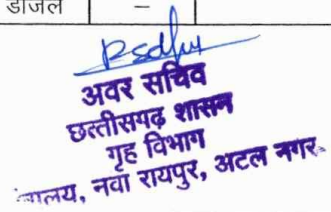 डीजल –
अवर सचिव
छत्तीसगढ़ शासन
गृह विभाग
नवा रायपुर, अटल नगर